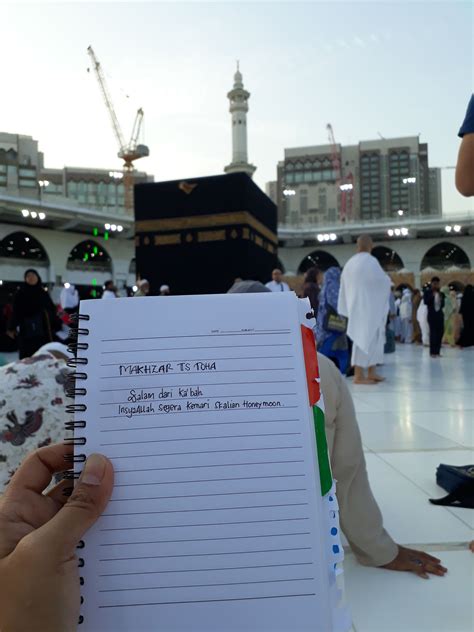 MAKHZAR TS TOHA
Salam dari Ka'bah
InsyaAllah segera kemari Skalian Honeymoon